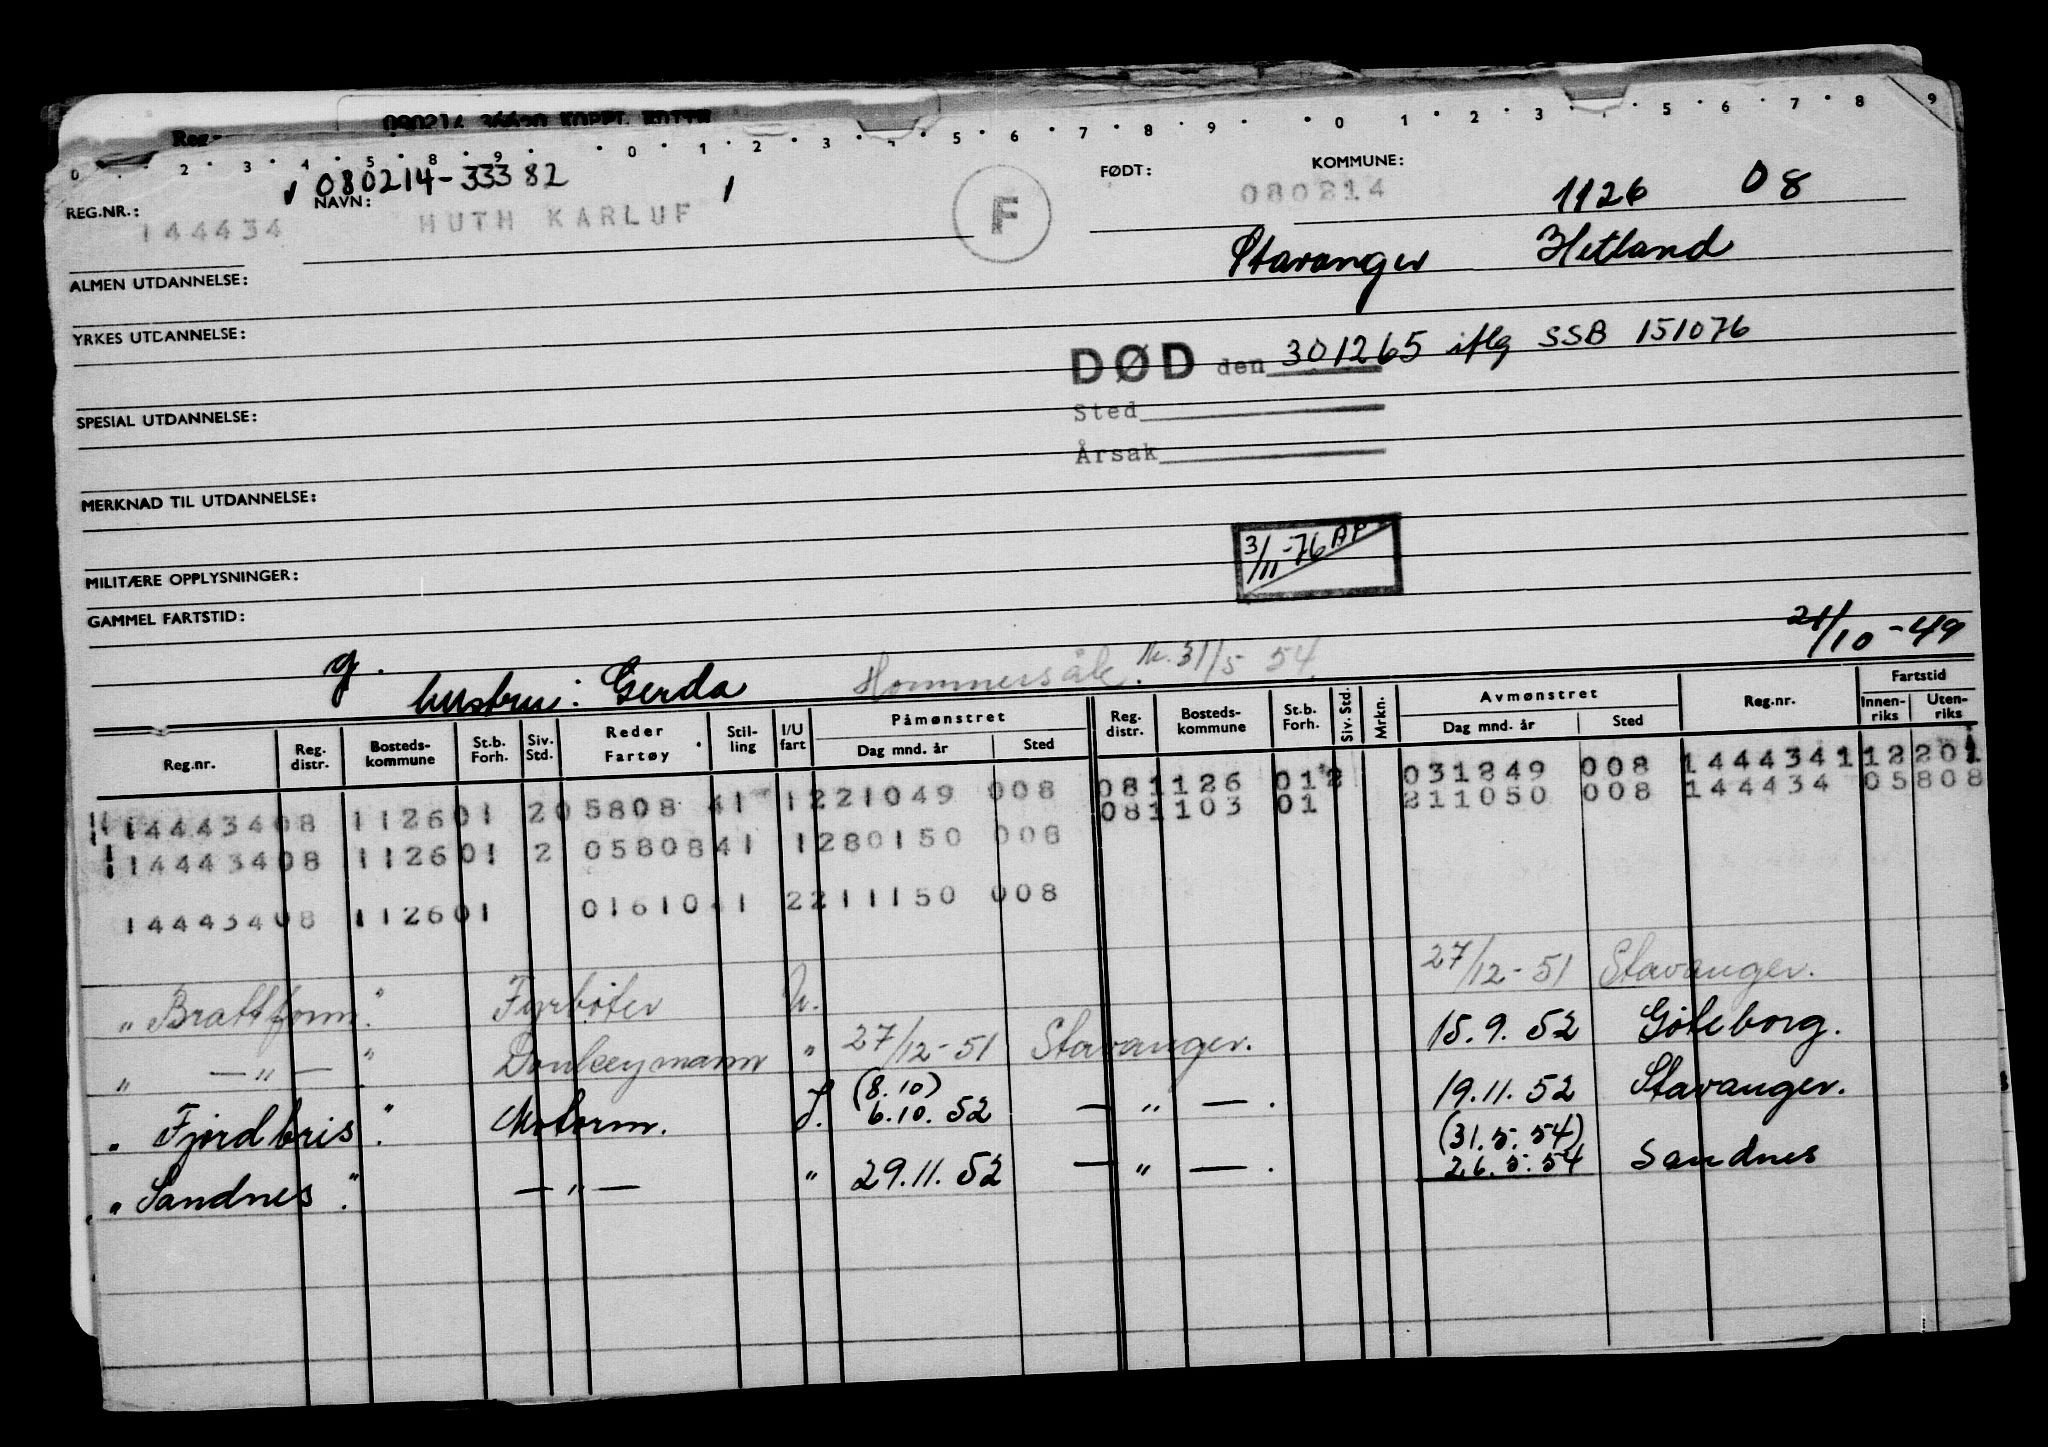 Reg.
0 . . 2 . 3 . 4 . 5 . 8 . 9 . . 0 . 1 . 2 . 3 . . 5 . 6 . 7 . 8 . 9 . . 0 . 1 . 2 . 3 . . 5 . 6 . 7 . 8 9
080214-33382
REG.NR.: 144434 NAVN: HUTH KARLUF F FØDT: 080214 KOMMUNE: 1126 08
Stavanger Hetland
ALMEN UTDANNELSE:
YRKES UTDANNELSE:
DØD den 301265 iflg SSB 151076
SPESIAL UTDANNELSE:
Sted
Årsak
MERKNAD TIL UTDANNELSE:
3/11-76 AP
MILITÆRE OPPLYSNINGER:
GAMMEL FARTSTID:
21/10-49
g. hustru: Gerda Hommersåk. 31/5 54.
Reg.nr. Reg. distr. Bosteds- kommune St.b. Forh. Siv. Std. Reder Fartøy Stil- ling I/U fart Påmønstret Dag mnd. år Sted Reg. distr. Bosteds- kommune St.b. Forh. Siv. Std. Mrkn. Avmønstret Dag mnd. år Sted Reg.nr. Fartstid Innen- riks Uten- riks
14443408 112601 205808 41 1221049 008 081126 01 2 031249 008 1444341112201
14443408 112601 2 0580841 1280150 008 081103 01 211050 008 144434 05808
14443408 112601 0161041 2211150 008
" Brattfonn." Fyrbøter U. 27/12-51 Stavanger.
" —"— " Donkeymann " 27/12-51 Stavanger. 15.9.52 Göteborg.
" Fjordbris." Motorm. J. (8.10) 6.10.52 —"—. 19.11.52 Stavanger.
" Sandnes." —"— " 29.11.52 —"—. (31.5.54) 26.5.54 Sandnes